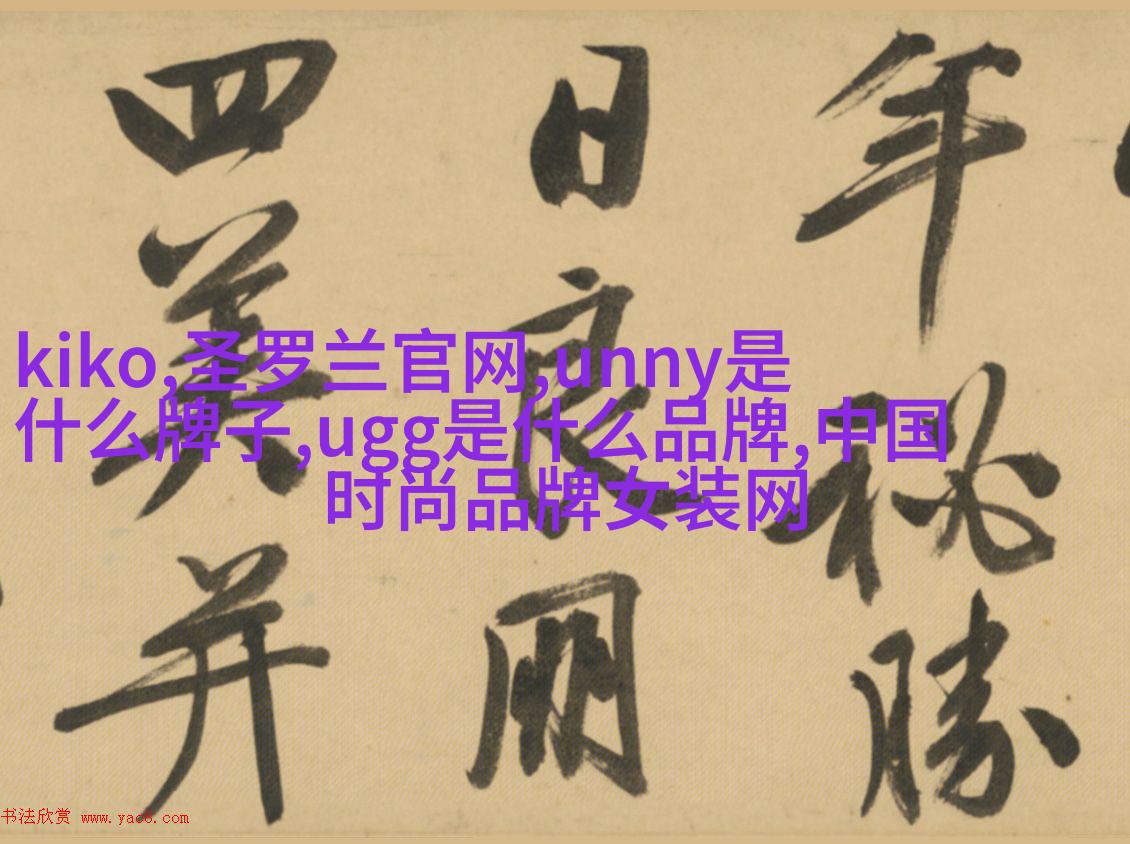 年秘勝
日良朋
四美并
kiko,圣罗兰官网,unny是
什么牌子,ugg是什么品牌,中国
时尚品牌女装网
书法欣赏 www.yac8.com